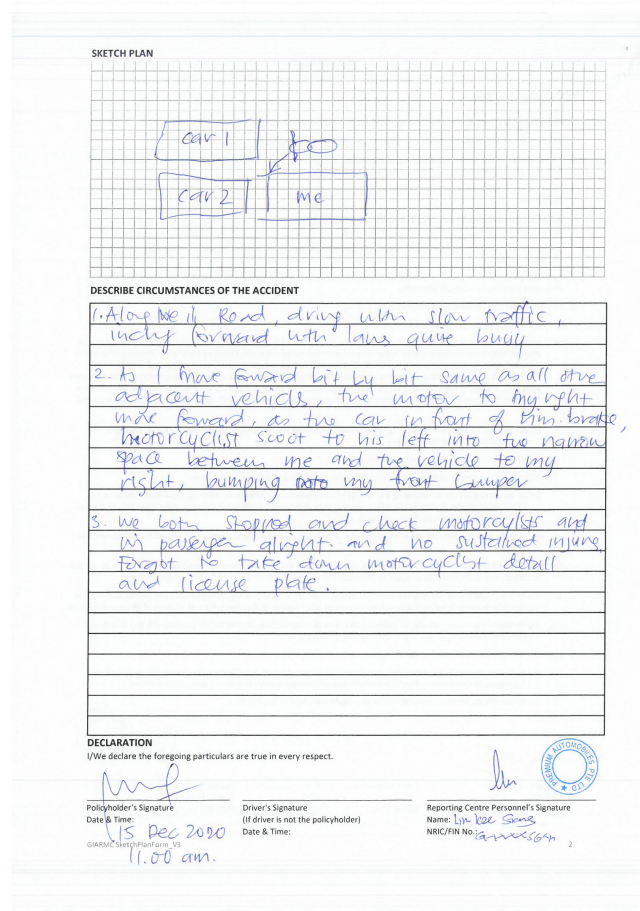 SKETCH PLAN
car 1
car 2
me
DESCRIBE CIRCUMSTANCES OF THE ACCIDENT
1. Along Road, driving with slow traffic,
inching forward with lanes quite busy
2. As I move forward bit by bit same as all other
adjacent vehicles, the motor to my right
move forward, as the car in front of him brake,
motorcyclist scoot to his left into the narrow
space between me and the vehicle to my
right, bumping my front bumper
3. We both stopped and check motorcylists and
passenger alright and no sustained injure
Forgot to take down motorcyclist detail
and license plate.
DECLARATION
I/We declare the foregoing particulars are true in every respect.
PREMIUM AUTOMOBILES PTE LTD
Policyholder's Signature
Driver's Signature
Reporting Centre Personnel's Signature
Date & Time:
(If driver is not the policyholder)
Name:
15 Dec 2020
Date & Time:
NRIC/FIN No.:
GIARMC SketchPlanForm_V3
2
11.00 am.